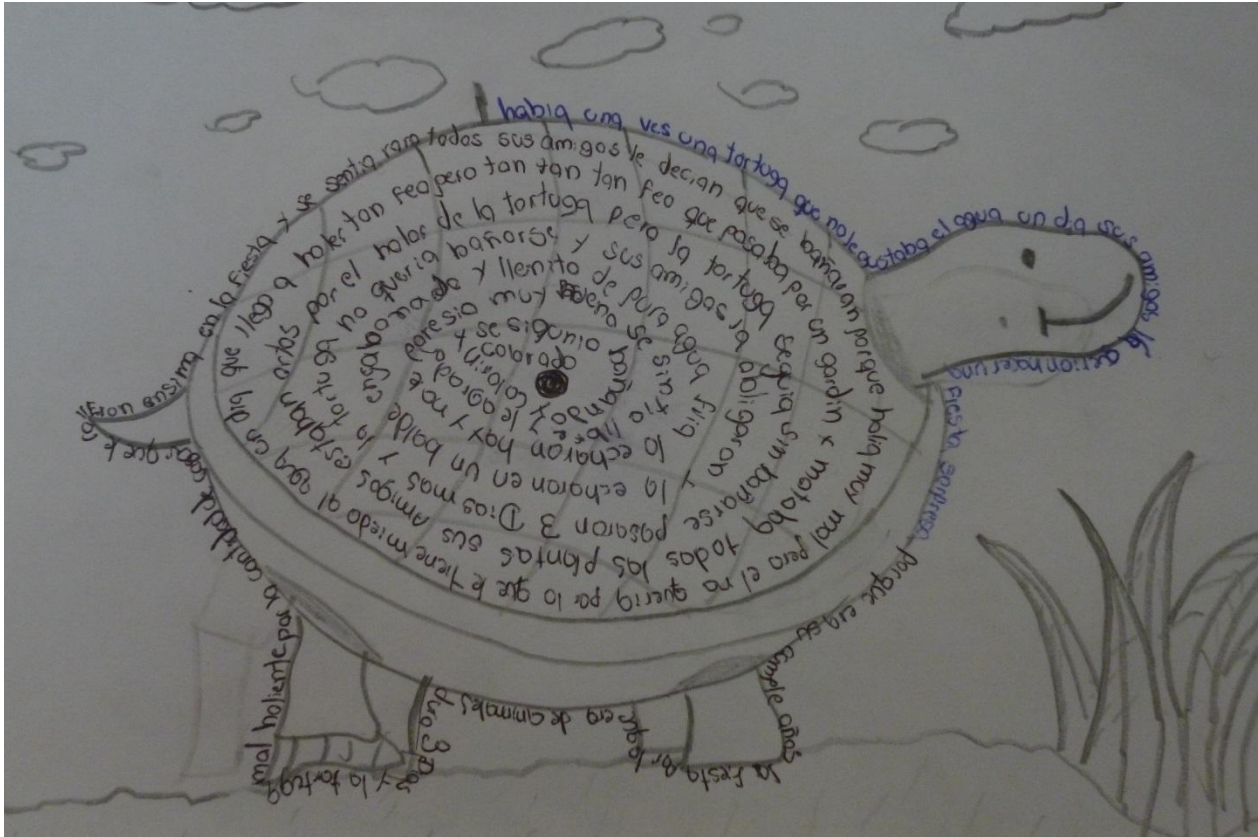 habia una ves una tortuga que no le gustaba el agua un dia sus amigos le
serian hacer una
fiesta sorpresa porque era su
cumple años
la fiesta por lo
que
era de animales
duro 3 Dias
y la tortuga
mal holiente por la cantidad de cosas que le ca
lleron ensima en la fiesta y se sentia
todos sus amigos le decian que se bañaran porque holia muy mal pero el no queria por lo que le tiene miedo al agua un dia que llego a holer tan feo
pero tan tan tan feo que pasaba por un gardin x mataba todas las plantas sus amigos y estaban artos por el holor de la tortuga
pero la tortuga seguia sin bañarse pasaron 3 Dias mas y la tortuga no queria bañarse x sus amigos la obligaron y la echaron en un balde
y llenito de pura agua fria lo echaron hay y no le
muy se sintio
bañando
le agrado
colorin
x se